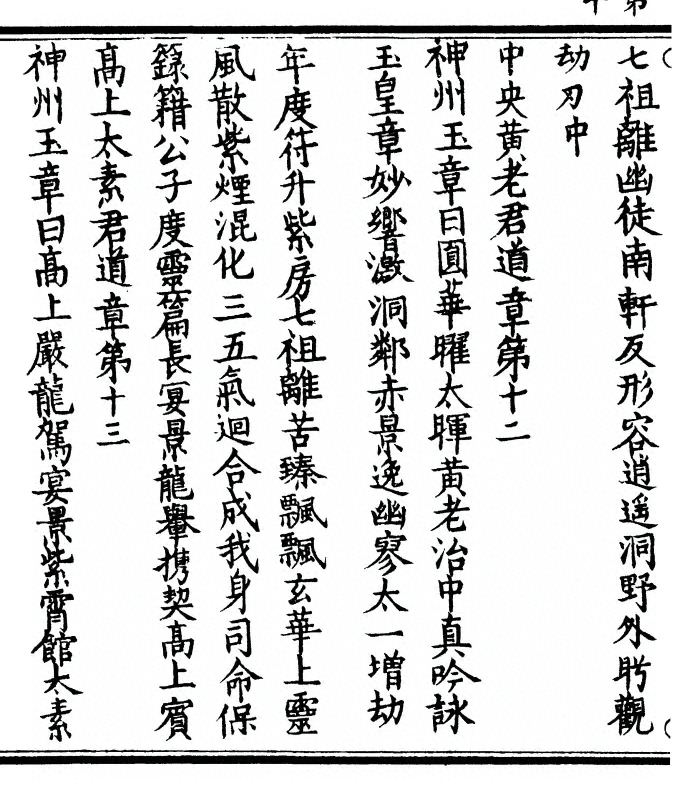 七祖離幽徒南軒反形容逍遥洞野外眄觀
劫刃中
中央黄老君道章第十二
神州玉章曰圓華曜太暉黄老治中真吟詠
玉皇章妙響激洞鄰赤景逸幽寥太一增劫
年度符升紫房七祖離苦臻飄飄玄華上靈
風散紫煙混化三五氣迴合成我身司命保
籙籍公子度靈篇長宴景龍轝携契高上賓
高上太素君道章第十三
神州玉章曰高上嚴龍駕宴景紫霄館太素